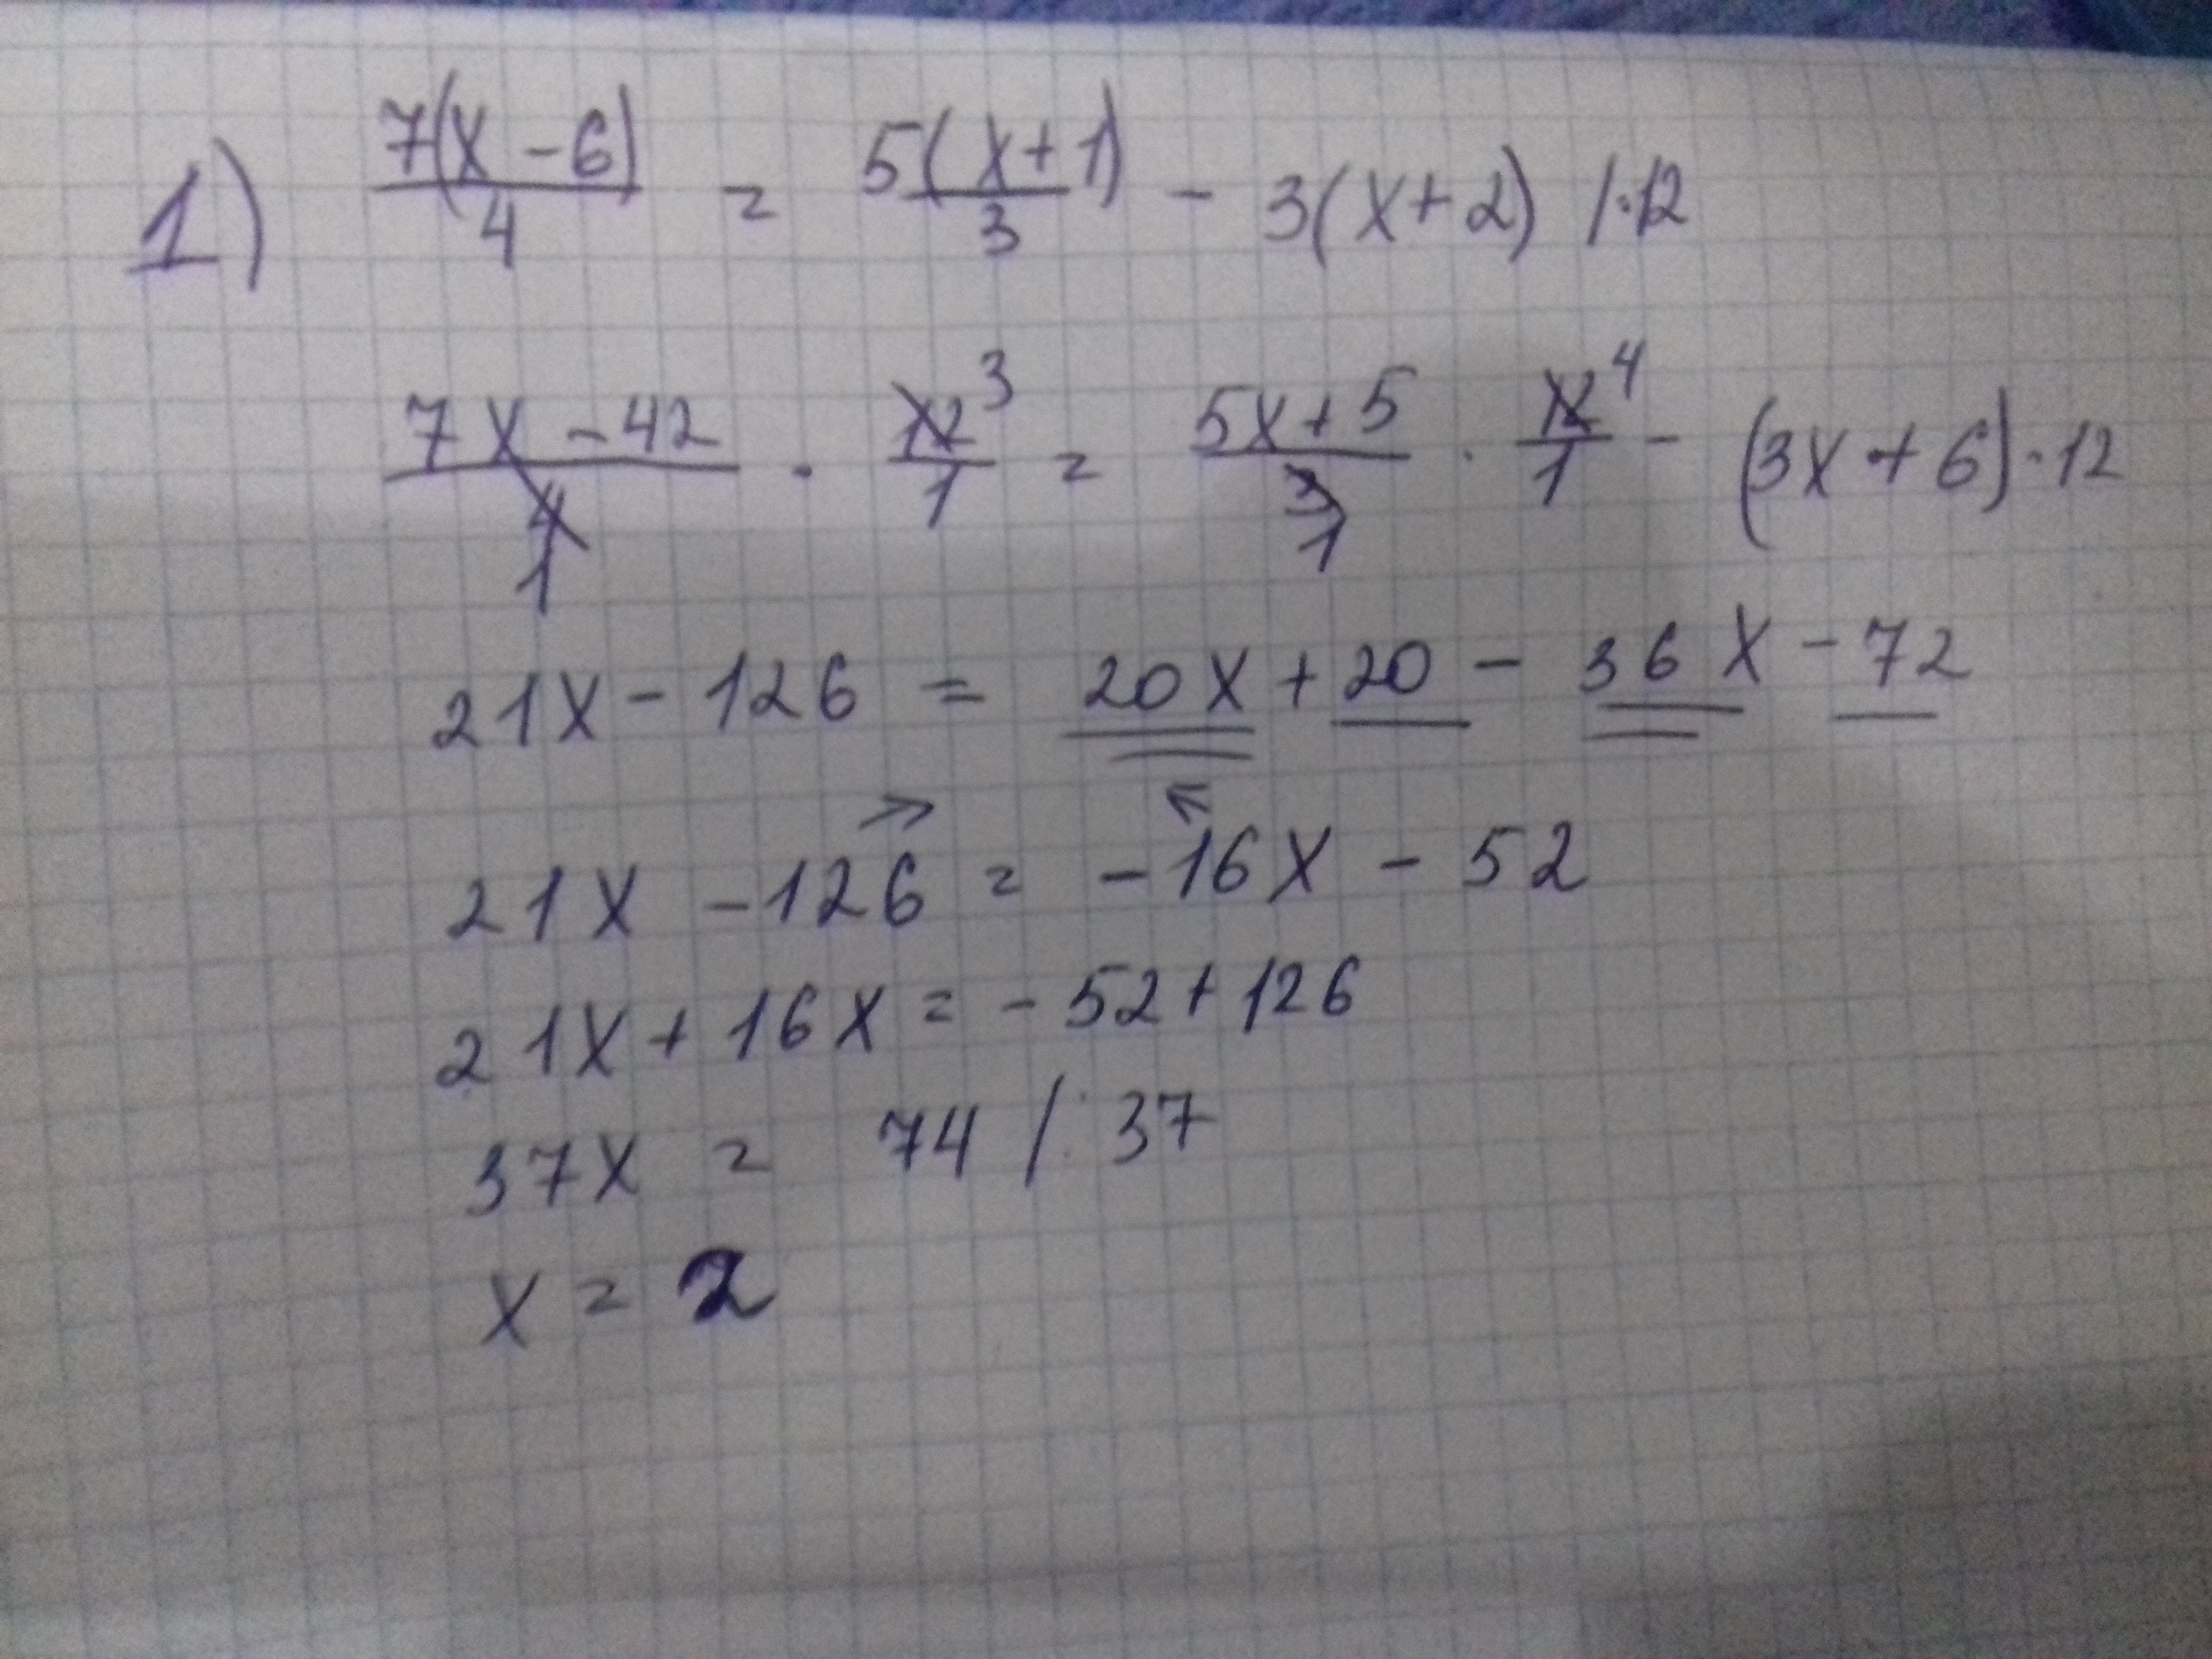 1) 7(x-6)/4 = 5(x+1)/3 - 3(x+2) /·12
7x-42/4 1 · 12/1 3 = 5x+5/3 1 · 12/1 4 - (3x+6)·12
21x - 126 = 20x + 20 - 36x - 72
21x - 126 = -16x - 52
21x + 16x = -52 + 126
37x = 74 /:37
x = 2